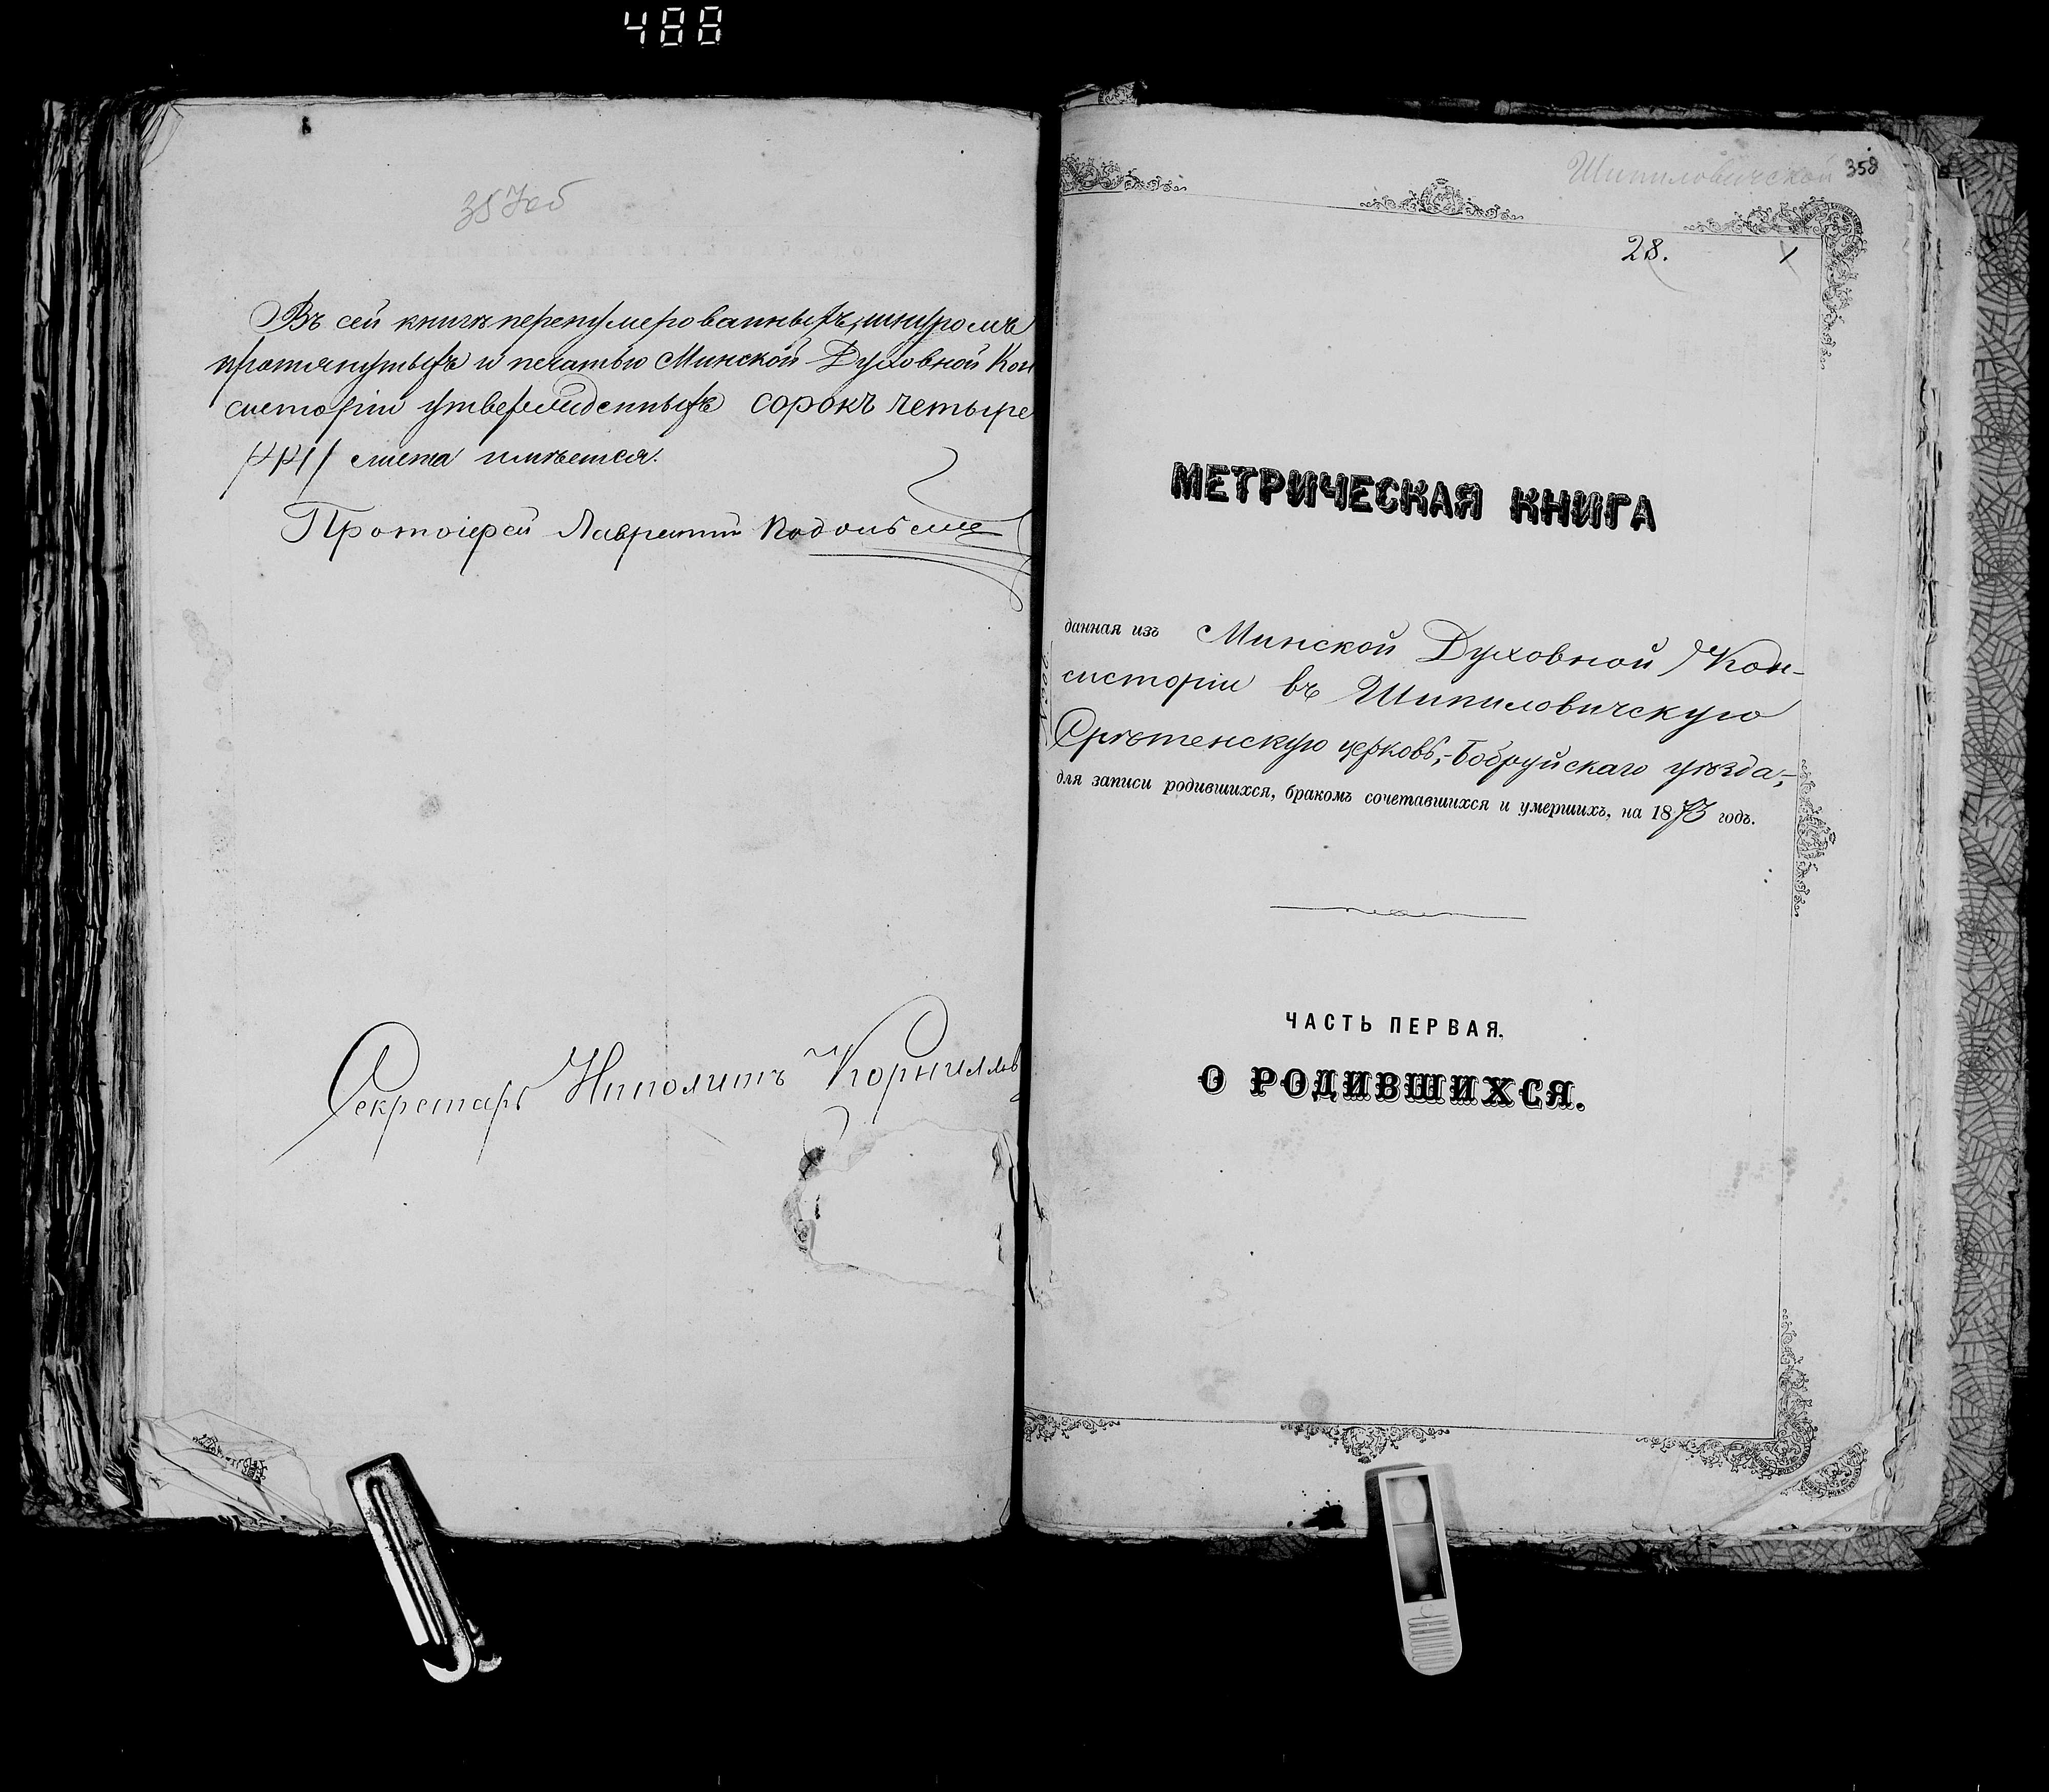 488
357об
Въ сей книгѣ перенумерованныхъ, шнуромъ
протянутыхъ и печатью Минской Духовной Кон
систоріи утвержденныхъ сорокъ четыре
/44/ листа имѣется.
Протоіерей Лаврентій
Секретарь Ипполитъ
Шипиловичской 358
28.
МЕТРИЧЕСКАЯ КНИГА
данная изъ Минской Духовной Кон-
систоріи въ Шипиловичскую
Срѣтенскую церковь,-Бобруйскаго уѣзда,-
для записи родившихся, бракомъ сочетавшихся и умершихъ, на 1873 годъ.
ЧАСТЬ ПЕРВАЯ.
О РОДИВШИХСЯ.